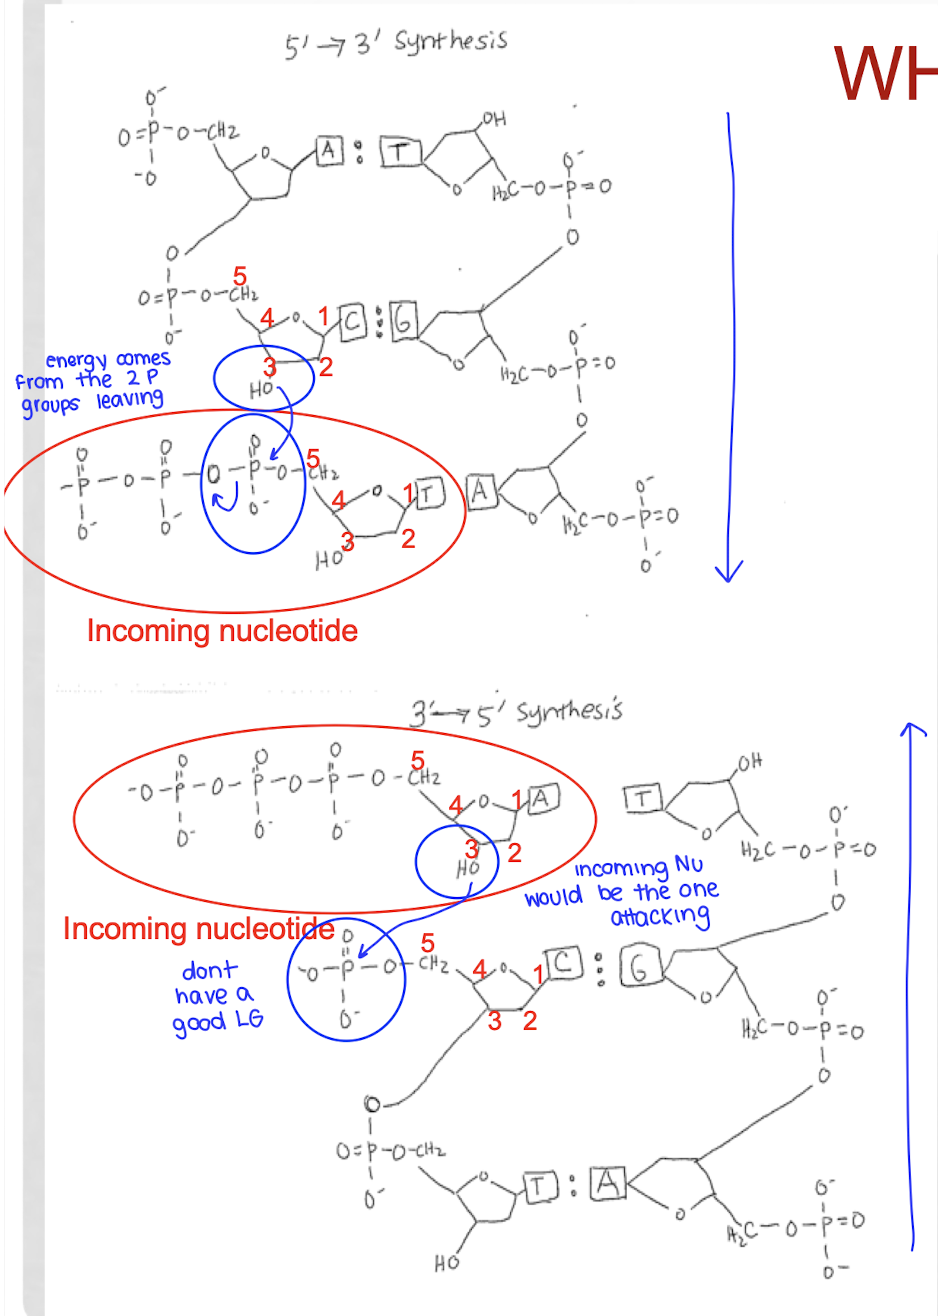 5' → 3' Synthesis
WH
O⁻
O=P-O-CH2
-O
O
A : T
OH
O
O⁻
H2C-O-P=O
O
O
5
O=P-O-CH2
O⁻
4 O 1 C : G
3 2
HO
O
O⁻
H2C-O-P=O
O
energy comes
from the 2 P
groups leaving
O O O
-P-O-P-O-P-O-CH2
5
O⁻ O⁻ O⁻
4 O 1 T A
3 2
HO
O
O⁻
H2C-O-P=O
O⁻
Incoming nucleotide
3' → 5' Synthesis
O O O
-O-P-O-P-O-P-O-CH2
5
O⁻ O⁻ O⁻
4 O 1 A
3 2
HO
T
OH
O
O⁻
H2C-O-P=O
O
incoming Nu
would be the one
attacking
Incoming nucleotide
dont
have a
good LG
O
-O-P-O-CH2
5
O⁻
4 O 1 C : G
3 2
O
O⁻
H2C-O-P=O
O
O
O=P-O-CH2
O⁻
O T : A
HO
O
O⁻
H2C-O-P=O
O⁻